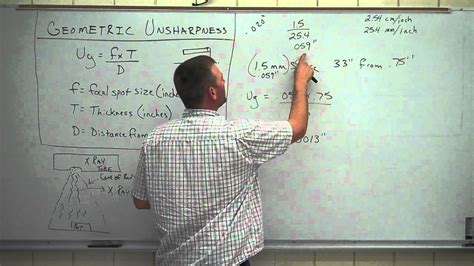 GEOMETRIC UNSHARPNESS
Ug = f x T
D
f = focal spot size (inches
T = Thickness (inches)
D = Distance from
X RAY
TUBE
X RAY
.020"
1.5
25.4
.059"
2.54 cm/inch
25.4 mm/inch
(1.5 mm)
.059"
33" from .75"
Ug = .05 .75
.0013"